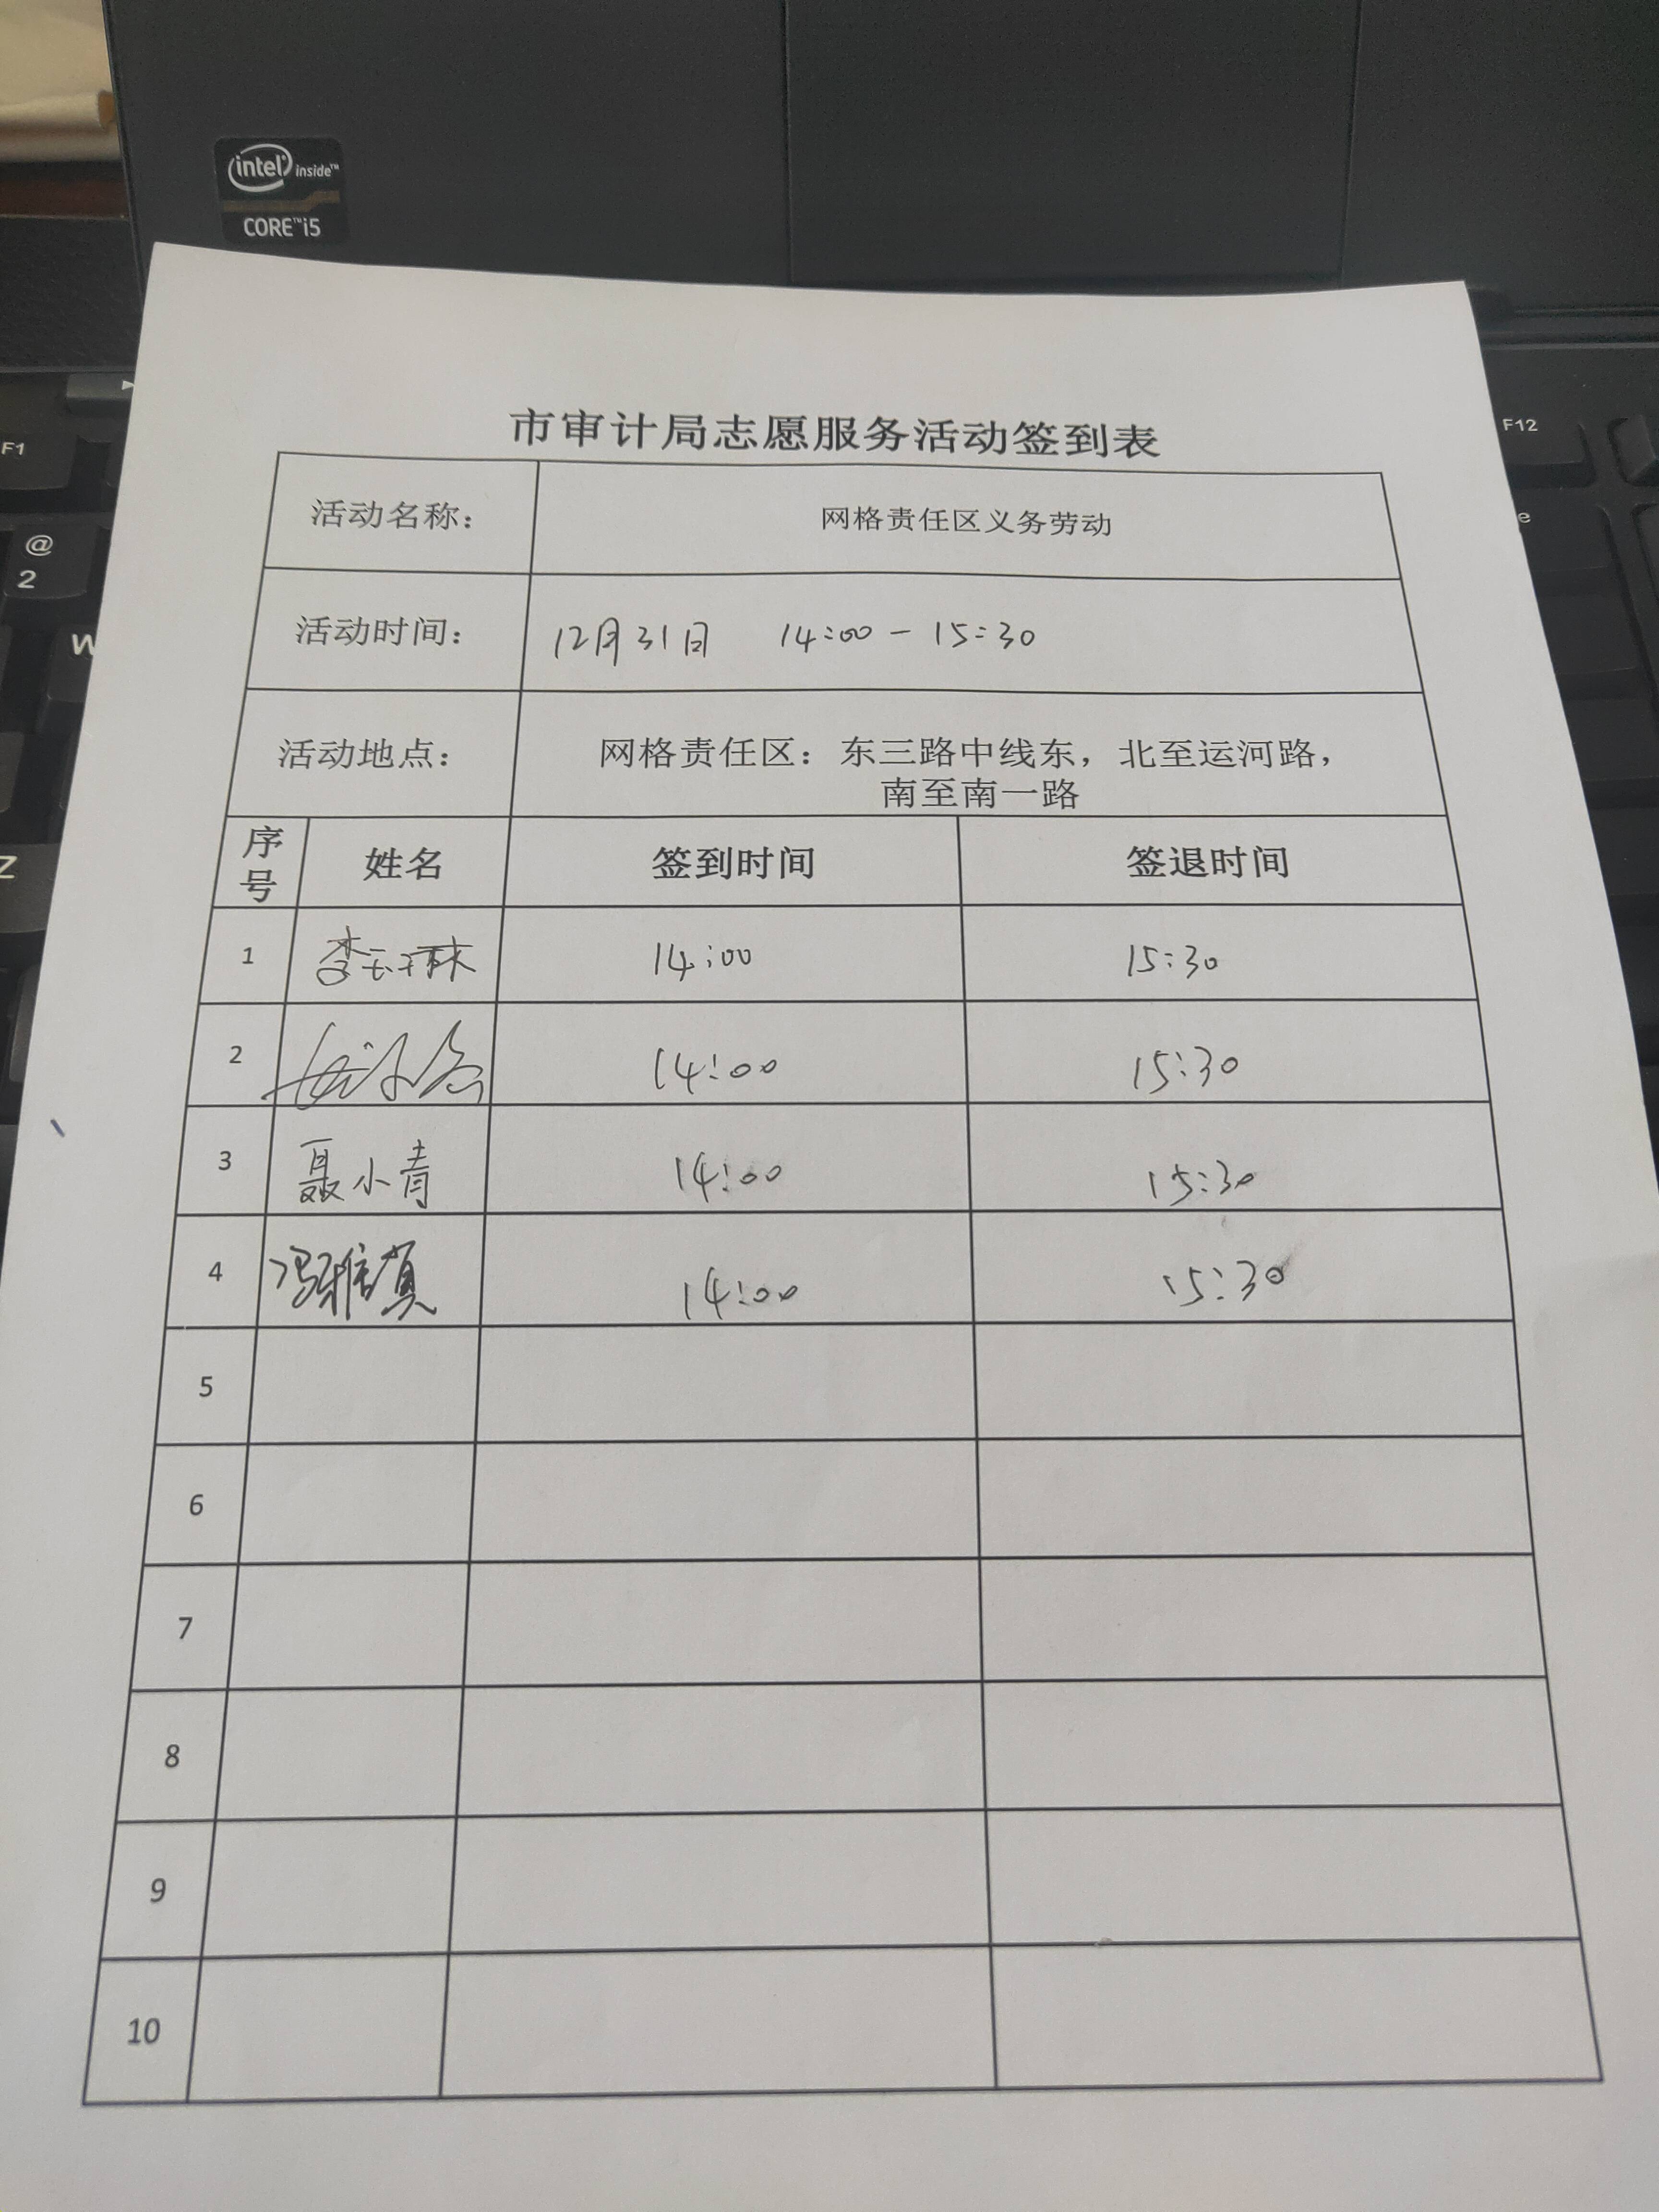 intel inside™
CORE™i5
F1
F12
@
2
W
Z
e
市审计局志愿服务活动签到表
活动名称： 网格责任区义务劳动
活动时间： 12月31日 14:00－15:30
活动地点： 网格责任区：东三路中线东，北至运河路，
南至南一路
序号 姓名 签到时间 签退时间
1 李玉琳 14:00 15:30
2 14:00 15:30
3 聂小青 14:00 15:30
4 14:00 15:30
5
6
7
8
9
10